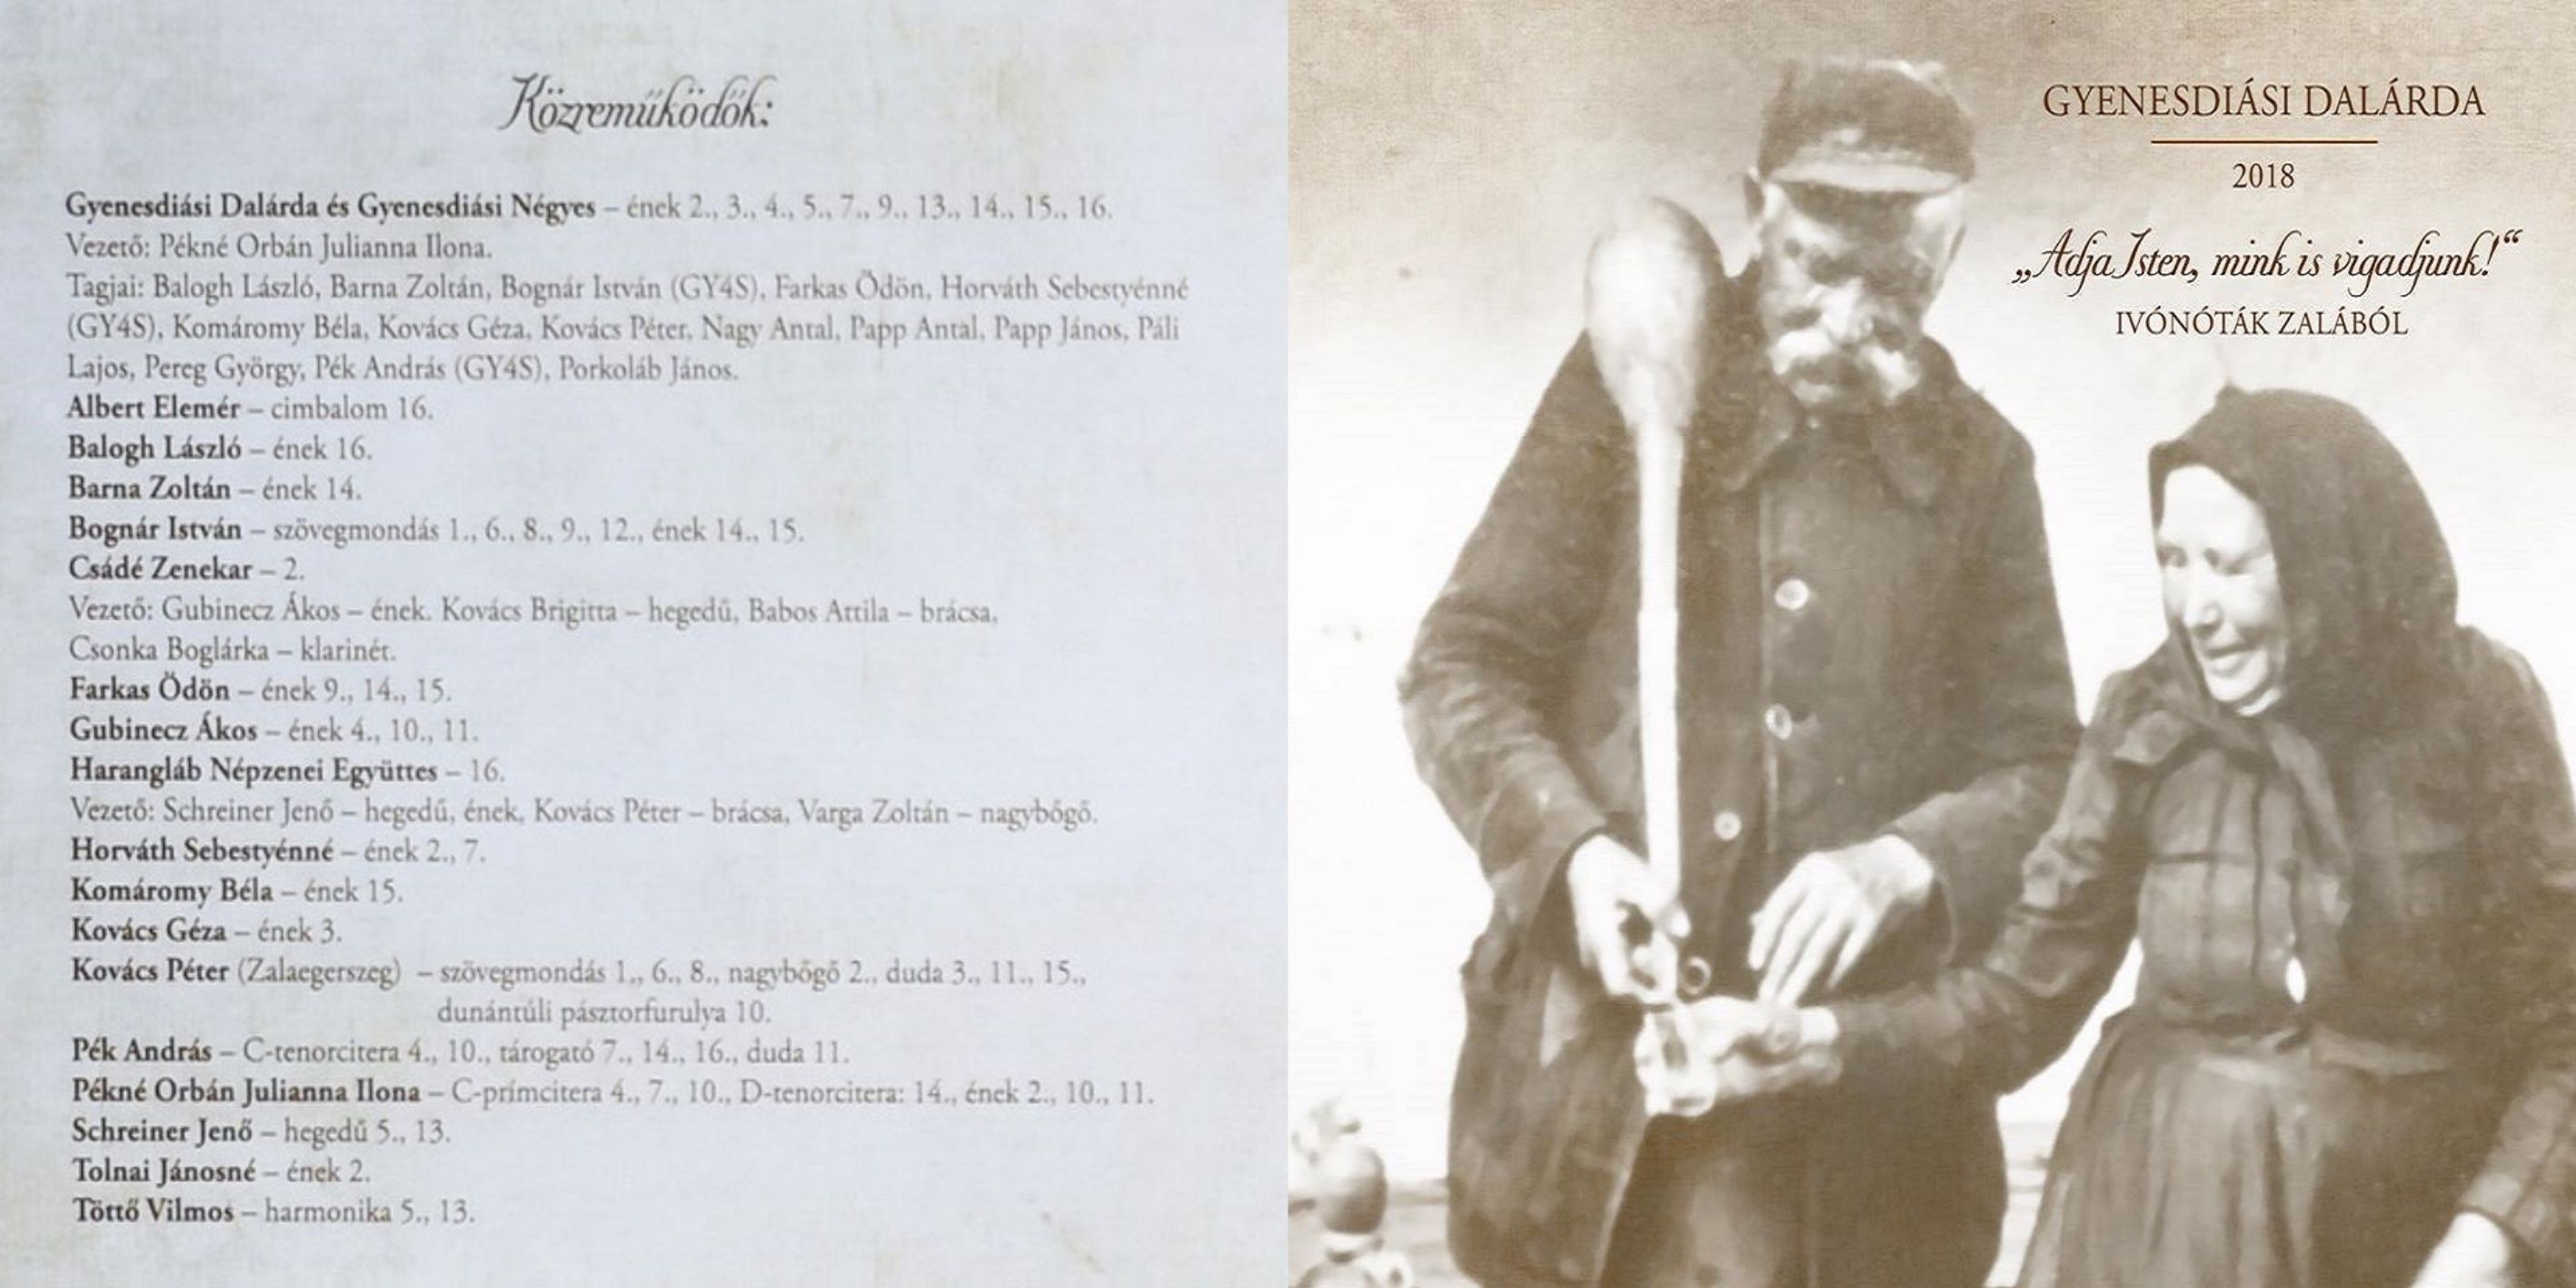 Közreműködők:
Gyenesdiási Dalárda és Gyenesdiási Négyes – ének 2., 3., 4., 5., 7., 9., 13., 14., 15., 16.
Vezető: Pékné Orbán Julianna Ilona.
Tagjai: Balogh László, Barna Zoltán, Bognár István (GY4S), Farkas Ödön, Horváth Sebestyénné
(GY4S), Komáromy Béla, Kovács Géza, Kovács Péter, Nagy Antal, Papp Antal, Papp János, Páli
Lajos, Pereg György, Pék András (GY4S), Porkoláb János.
Albert Elemér – cimbalom 16.
Balogh László – ének 16.
Barna Zoltán – ének 14.
Bognár István – szövegmondás 1., 6., 8., 9., 12., ének 14., 15.
Csádé Zenekar – 2.
Vezető: Gubinecz Ákos – ének. Kovács Brigitta – hegedű, Babos Attila – brácsa,
Csonka Boglárka – klarinét.
Farkas Ödön – ének 9., 14., 15.
Gubinecz Ákos – ének 4., 10., 11.
Harangláb Népzenei Együttes – 16.
Vezető: Schreiner Jenő – hegedű, ének, Kovács Péter – brácsa, Varga Zoltán – nagybőgő.
Horváth Sebestyénné – ének 2., 7.
Komáromy Béla – ének 15.
Kovács Géza – ének 3.
Kovács Péter (Zalaegerszeg) – szövegmondás 1., 6., 8., nagybőgő 2., duda 3., 11., 15.,
dunántúli pásztorfurulya 10.
Pék András – C-tenorcitera 4., 10., tárogató 7., 14., 16., duda 11.
Pékné Orbán Julianna Ilona – C-prímcitera 4., 7., 10., D-tenorcitera: 14., ének 2., 10., 11.
Schreiner Jenő – hegedű 5., 13.
Tolnai Jánosné – ének 2.
Töttő Vilmos – harmonika 5., 13.
GYENESDIÁSI DALÁRDA
2018
„Adja Isten, mink is vigadjunk!“
IVÓNÓTÁK ZALÁBÓL